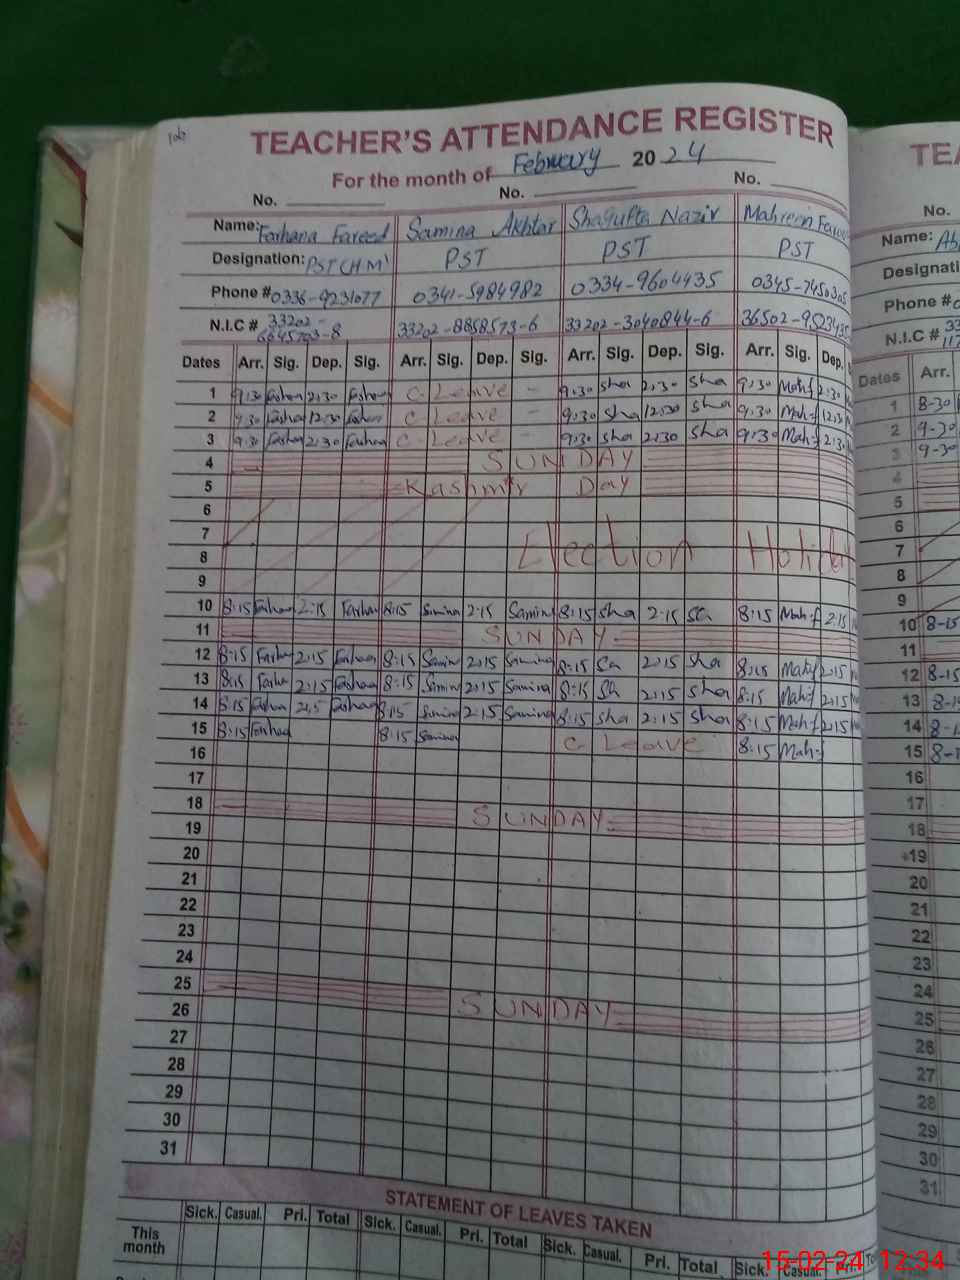 TEACHER'S ATTENDANCE REGISTER
For the month of February 2024
No. No. No.
Name: Farhana Fareed Samina Akhtar Shagufta Nazir Mahreen
Designation: PST (HM) PST PST PST
Phone # 0336-9231077 0341-5984982 0334-9604435 0345-7450305
N.I.C # 33202-6645703-8 33202-8858573-6 33202-3040844-6 36502-9523435
Dates Arr. Sig. Dep. Sig. Arr. Sig. Dep. Sig. Arr. Sig. Dep. Sig. Arr. Sig. Dep.
1 9:30 Farhana 2:30 Farhana C. Leave - 9:30 Sha 2:30 Sha 9:30 Mah-f 2:30
2 9:30 Farhana 12:30 Farhana C Leave - 9:30 Sha 12:30 Sha 9:30 Mah-f 12:30
3 9:30 Farhana 2:30 Farhana C- Leave - 9:30 Sha 2:30 Sha 9:30 Mah-f 2:30
4 SUNDAY
5 Kashmir Day
6
7 Election Holiday
8
9
10 8:15 Farhana 2:15 Farhana 8:15 Samina 2:15 Samina 8:15 Sha 2:15 Sa 8:15 Mah-f 2:15
11 SUNDAY
12 8:15 Farhana 2:15 Farhana 8:15 Samina 2:15 Samina 8:15 Sa 2:15 Sha 8:15 Mah-f 2:15
13 8:15 Farhana 2:15 Farhana 8:15 Samina 2:15 Samina 8:15 Sa 2:15 Sha 8:15 Mah-f 2:15
14 8:15 Farhana 2:15 Farhana 8:15 Samina 2:15 Samina 8:15 Sha 2:15 Sha 8:15 Mah-f 2:15
15 8:15 Farhana 8:15 Samina C Leave 8:15 Mah-f
16
17
18 SUNDAY
19
20
21
22
23
24
25 SUNDAY
26
27
28
29
30
31
STATEMENT OF LEAVES TAKEN
Sick. Casual. Pri. Total Sick. Casual. Pri. Total Sick. Casual. Pri. Total Sick. Casual. Pri.
This month
No.
Name:
Designati
Phone #
N.I.C #
Dates Arr.
1 8-30
2 9-30
3 9-30
4
5
6
7
8
9
10 8-15
11
12 8-15
13
14
15
16
17
18
19
20
21
22
23
24
25
26
27
28
29
30
31
15-02-24 12:34